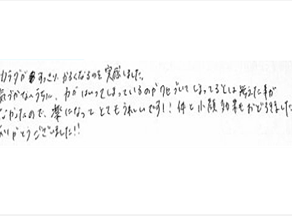 カラダがすっきり、かるくなるのを実感しました。
気づかないうちに、力がはいってしまっているのがクセづいてしまってるとは考えた事が
なかったので、楽になってとてもうれしいです！体と小顔効果もおどろきました
ありがとうございました!!